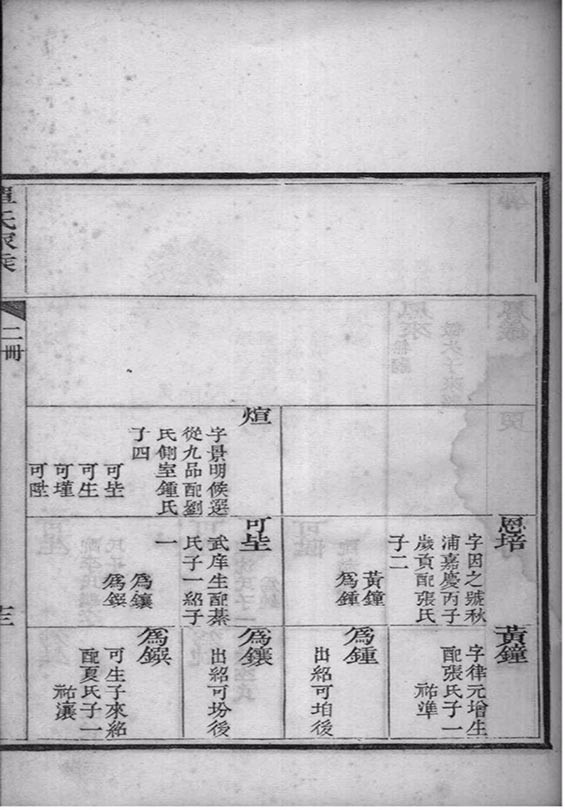 恩培
字因之號秋
浦嘉慶丙子
歲貢配張氏
子二
黃鐘
為鍾
黃鐘
字律元增生
配張氏子一
祐準
為鍾
出紹可垍後
煊
字景明候選
從九品配劉
氏側室鍾氏
子四
可坒
可生
可墐
可陞
可坒
武庠生配綦
氏子一紹子
一
為鑲
為鏌
為鑲
出紹可坋後
為鏌
可生子來紹
配夏氏子一
祐瀼
氏家乘
二冊
十三